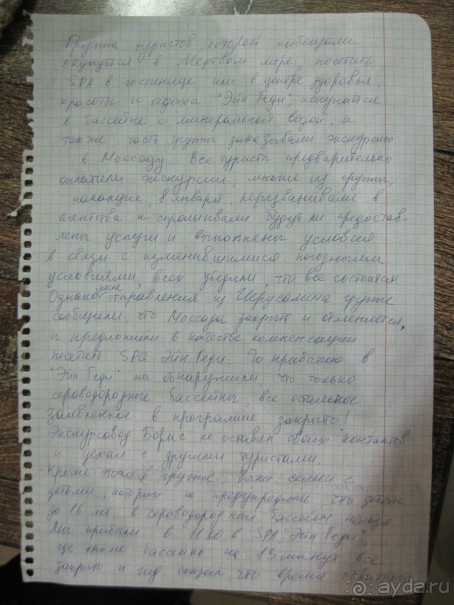 Группа туристов, которая планировали
окунуться в Мертвом море, посетить
SPA в гостинице или в центре здоровья,
красоты и отдыха "Эйн Геди", искупаться
в бассейне с минеральной водой, а
также часть группы заказывали экскурсию
в Моссаду. Все туристы предварительно
оплатили экскурсии, многие из группы
накануне, 8 января, перезванивали в
агентства и спрашивали будут ли предостав-
лены услуги и выполнены условия
в связи с изменившимися погодными
условиями, всех уверили, что все состоится
Однако после отправления из Иерусалима группе
сообщили что Моссада закрыта и отменяется,
и предложили в качестве компенсации
посетить SPA Эйн Геди. По прибытию в
"Эйн Геди" мы обнаружили, что только
сероводородные бассейны, все остальное
заявленное в программе закрыто!
Экскурсовод Борис не оставил своих контактов
и уехал с другими туристами.
Кроме того в группе были семьи с
детьми, которых не предупредили что детям
до 16 лет в сероводородный бассейн нельзя
Мы прибыли в 11 30 в SPA "Эйн Геди",
где кроме бассейна на 15 минут все
закрыто и гид сказал, что время
ayda.ru